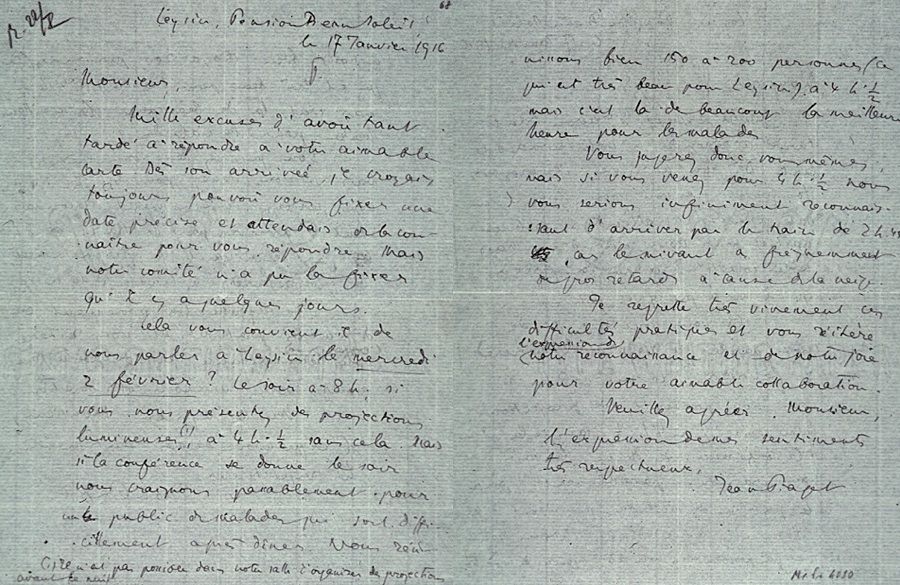 r. 22/I
68
Leysin, Pension Beau Soleil
le 17 Janvier 1916
Monsieur,
Mille excuses d'avoir tant
tardé à répondre à votre aimable
carte. Dès son arrivée, je croyais
toujours pouvoir vous fixer une
date précise et attendais de la con-
naître pour vous répondre. Mais
notre comité n'a pu la fixer
qu'il y a quelques jours.
Cela vous convient-il de
nous parler à Leysin le mercredi
2 février? Le soir à 8 h. si
vous nous présentez des projections
lumineuses(1), à 4 h. 1/2 sans cela. Mais
si la conférence se donne le soir
nous craignons passablement pour
un public de malades qui sort diffi-
cilement après dîner. Nous réu-
(1) Ce n'est pas possible dans notre salle d'organiser des projections
avant la nuit
nissons bien 150 à 200 personnes (ce
qui est très beau pour Leysin) à 4 h. 1/2
mais c'est là de beaucoup la meilleure
heure pour les malades
Vous jugerez donc vous-même,
mais si vous venez pour 4 h. 1/2 nous
vous serions infiniment reconnais-
sant d'arriver par le train de 2 h.
, car le suivant a fréquemment
de gros retards à cause de la neige.
Je regrette très vivement ces
difficultés pratiques et vous réitère
l'expression de
notre reconnaissance et de notre joie
pour votre aimable collaboration.
Veuillez agréer, Monsieur,
l'expression de mes sentiments
très respectueux,
Jean Piaget